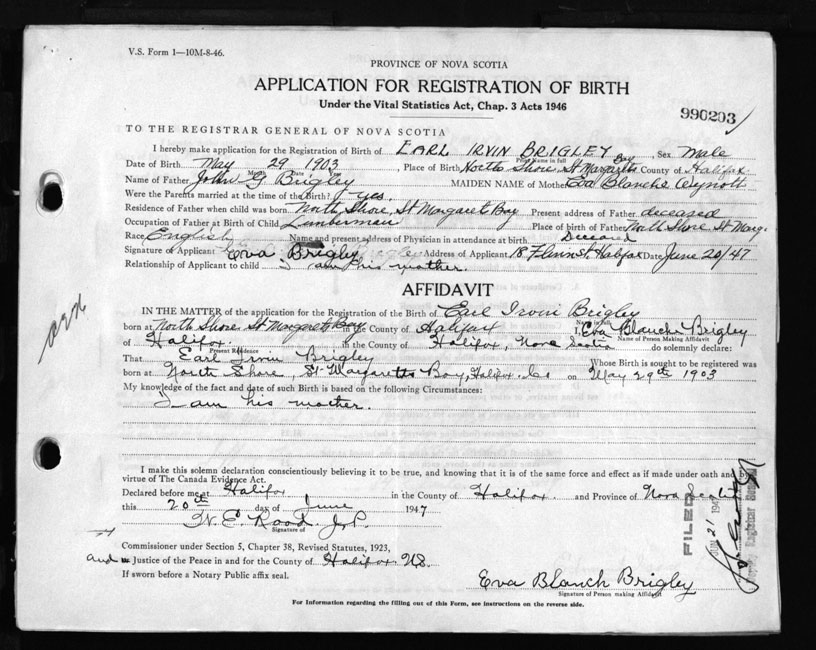 V.S. Form 1—10M-8-46.
PROVINCE OF NOVA SCOTIA
APPLICATION FOR REGISTRATION OF BIRTH
Under the Vital Statistics Act, Chap. 3 Acts 1946
990203
TO THE REGISTRAR GENERAL OF NOVA SCOTIA
I hereby make application for the Registration of Birth of EARL IRVIN BRIGLEY, Sex Male
Print Name in full
Date of Birth May 29 1903, Place of Birth North Shore St Margarets Bay County of Halifax
Month Date Year
Name of Father John G Brigley MAIDEN NAME of Mother Eva Blanche
Were the Parents married at the time of the Birth? yes.
Residence of Father when child was born North Shore, St Margarets Bay Present address of Father deceased
Occupation of Father at Birth of Child Lumberman Place of birth of Father North Shore St Marg.
Race English Name and present address of Physician in attendance at birth Deceased
Signature of Applicant Eva Brigley Address of Applicant 18 Flinn St. Halifax Date June 20/47
Relationship of Applicant to child I am his mother.
AFFIDAVIT
IN THE MATTER of the application for the Registration of the Birth of Earl Irvin Brigley
Name in full
born at North Shore St Margarets Bay in the County of Halifax I, Eva Blanche Brigley
Name of Person Making Affidavit
of Halifax. in the County of Halifax, Nova Scotia do solemnly declare:
Present Residence
That Earl Irvin Brigley Whose Birth is sought to be registered was
born at North Shore, St Margaretts Bay, Halifax Co on May 29th 1903
My knowledge of the fact and date of such Birth is based on the following Circumstances:
I am his mother.
I make this solemn declaration conscientiously believing it to be true, and knowing that it is of the same force and effect as if made under oath and by
virtue of The Canada Evidence Act.
Declared before me at Halifax in the County of Halifax. and Province of Nova Scotia
this 20th day of June 1947
W. E. Rood J.P.
Signature of
Commissioner under Section 5, Chapter 38, Revised Statutes, 1923,
and Justice of the Peace in and for the County of Halifax NS.
If sworn before a Notary Public affix seal.
Eva Blanch Brigley
Signature of Person making Affidavit
For Information regarding the filling out of this Form, see instructions on the reverse side.
FILED
JUN 21 1947